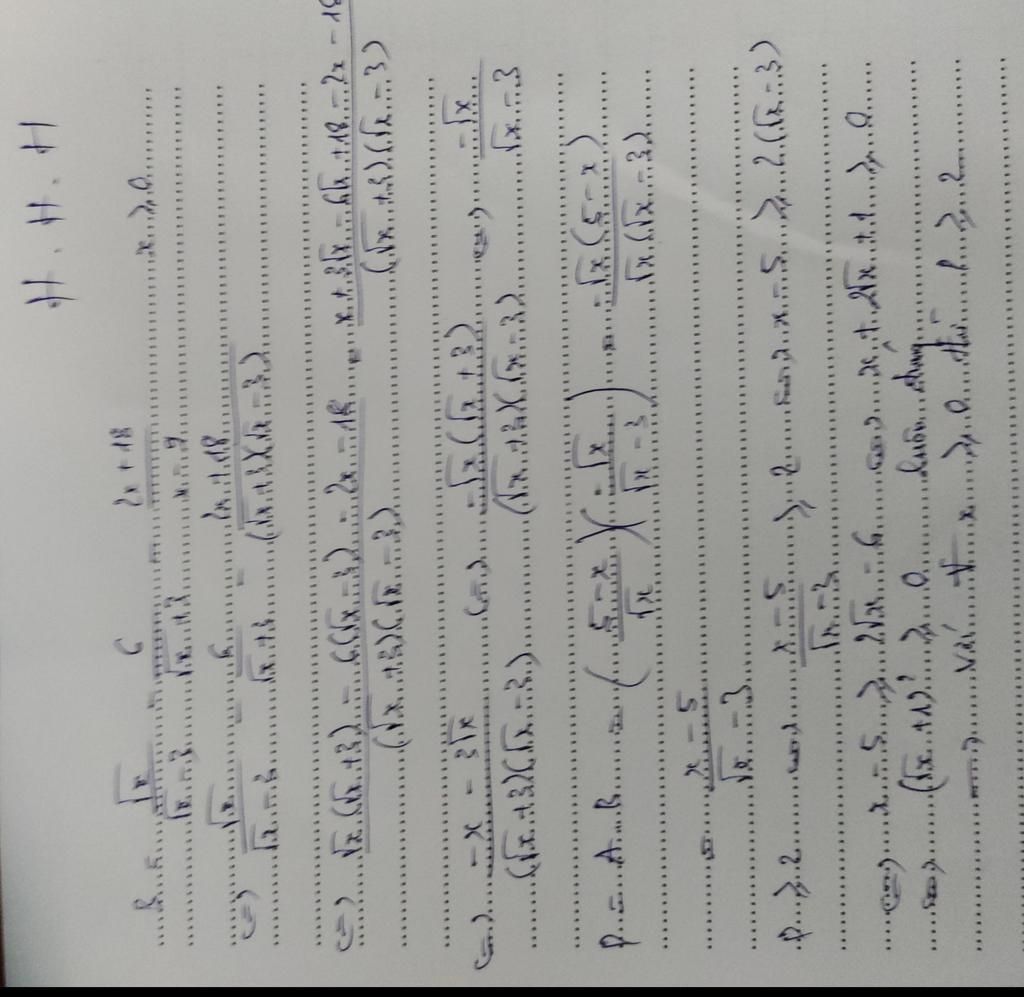 H. H. H
B = √x/(√x - 3) - 6/(√x + 3) - (2x + 18)/(x - 9) x ⩾ 0
(=) √x/(√x - 3) - 6/(√x + 3) - (2x + 18)/((√x + 3)(√x - 3))
(=) (√x(√x + 3) - 6(√x - 3) - 2x - 18)/((√x + 3)(√x - 3)) = (x + 3√x - 6√x + 18 - 2x - 18)/((√x + 3)(√x - 3))
(=) (-x - 3√x)/((√x + 3)(√x - 3)) (=) (-√x(√x + 3))/((√x + 3)(√x - 3)) (=) (-√x)/(√x - 3)
P = A.B = ((5 - x)/√x)((-√x)/(√x - 3)) = (-√x(5 - x))/(√x(√x - 3))
= (x - 5)/(√x - 3)
P ⩾ 2 (=) (x - 5)/(√x - 3) ⩾ 2 (=) x - 5 ⩾ 2(√x - 3)
(=) x - 5 ⩾ 2√x - 6 (=) x + 2√x + 1 ⩾ 0
(=) (√x + 1)² ⩾ 0 luôn đúng
=) với ∀ x ⩾ 0 thì P ⩾ 2